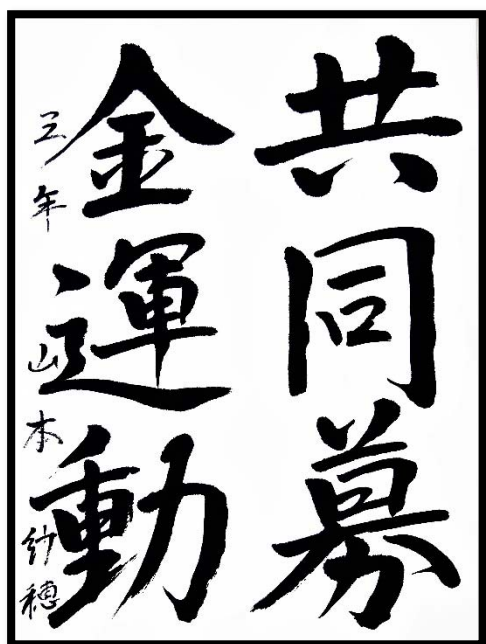 共同募
金運動
三年 山本紗穂